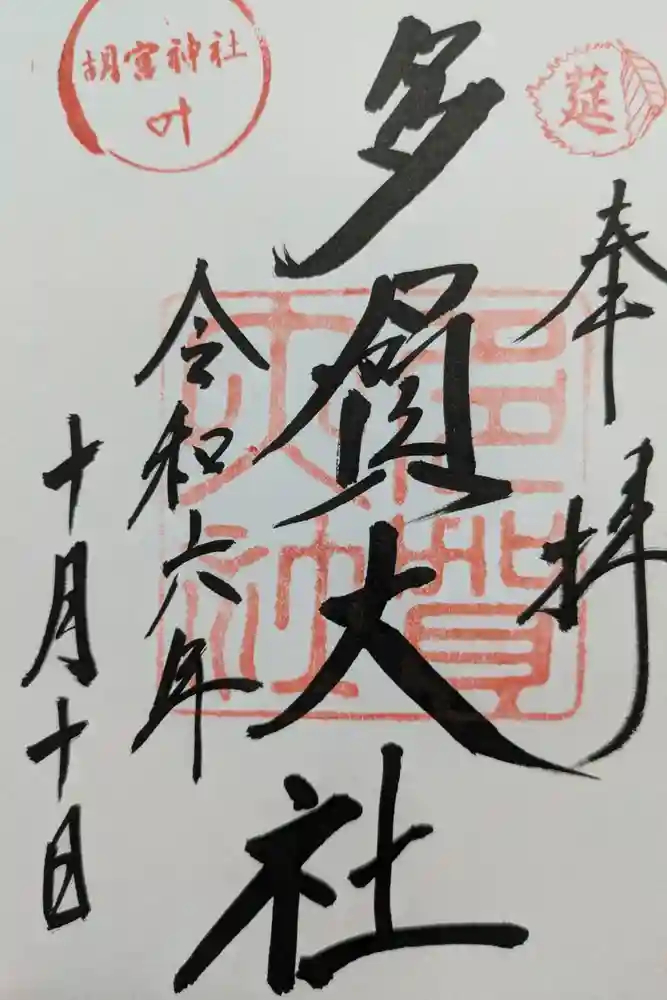 莚
奉拝
多賀大社
多賀大社
令和六年
十月十日
胡宮神社
叶